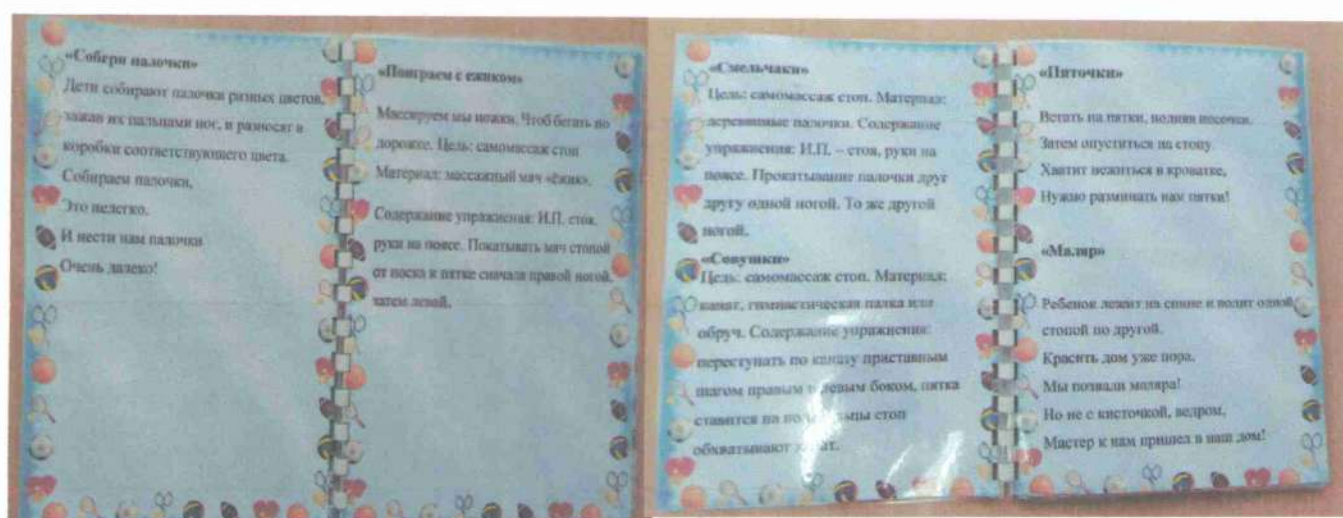 «Собери палочки»
Дети собирают палочки разных цветов,
зажав их пальцами ног, и разносят в
коробки соответствующего цвета.
Собираем палочки,
Это нелегко.
И нести нам палочки
Очень далеко!
«Поиграем с ежиком»
Массируем мы ножки. Чтоб бегать по
дорожке. Цель: самомассаж стоп
Материал: массажный мяч «ёжик».
Содержание упражнения: И.П. стоя,
руки на поясе. Покатывать мяч стопой
от носка к пятке сначала правой ногой,
затем левой.
«Смельчаки»
Цель: самомассаж стоп. Материал:
деревянные палочки. Содержание
упражнения: И.П. – стоя, руки на
поясе. Прокатывание палочки друг
другу одной ногой. То же другой
ногой.
«Совушки»
Цель: самомассаж стоп. Материал:
канат, гимнастическая палка или
обруч. Содержание упражнения:
переступать по канату приставным
шагом правым и левым боком, пятка
ставится на стоп
обхватывают
«Пяточки»
Встать на пятки, подняв носочки.
Затем опуститься на стопу
Хватит нежиться в кроватке,
Нужно разминать нам пятки!
«Маляр»
Ребенок лежит на спине и водит одной
стопой по другой.
Красить дом уже пора,
Мы позвали маляра!
Но не с кисточкой, ведром,
Мастер к нам пришел в наш дом!